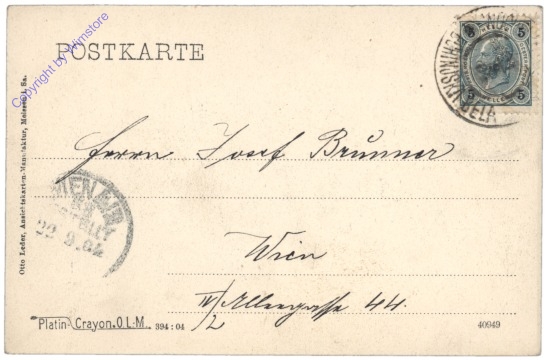 Copyright by Wimstore
POSTKARTE
5 5
5 5
Herrn Josef Brunner
Wien
IV/2 Alleegasse 44.
WIEN
BESTELLT
22 9.04
Otto Leder, Ansichtskarten-Manufaktur, Meissen i. Sa.
Platin-Crayon.O.L.M. 394:04
40949